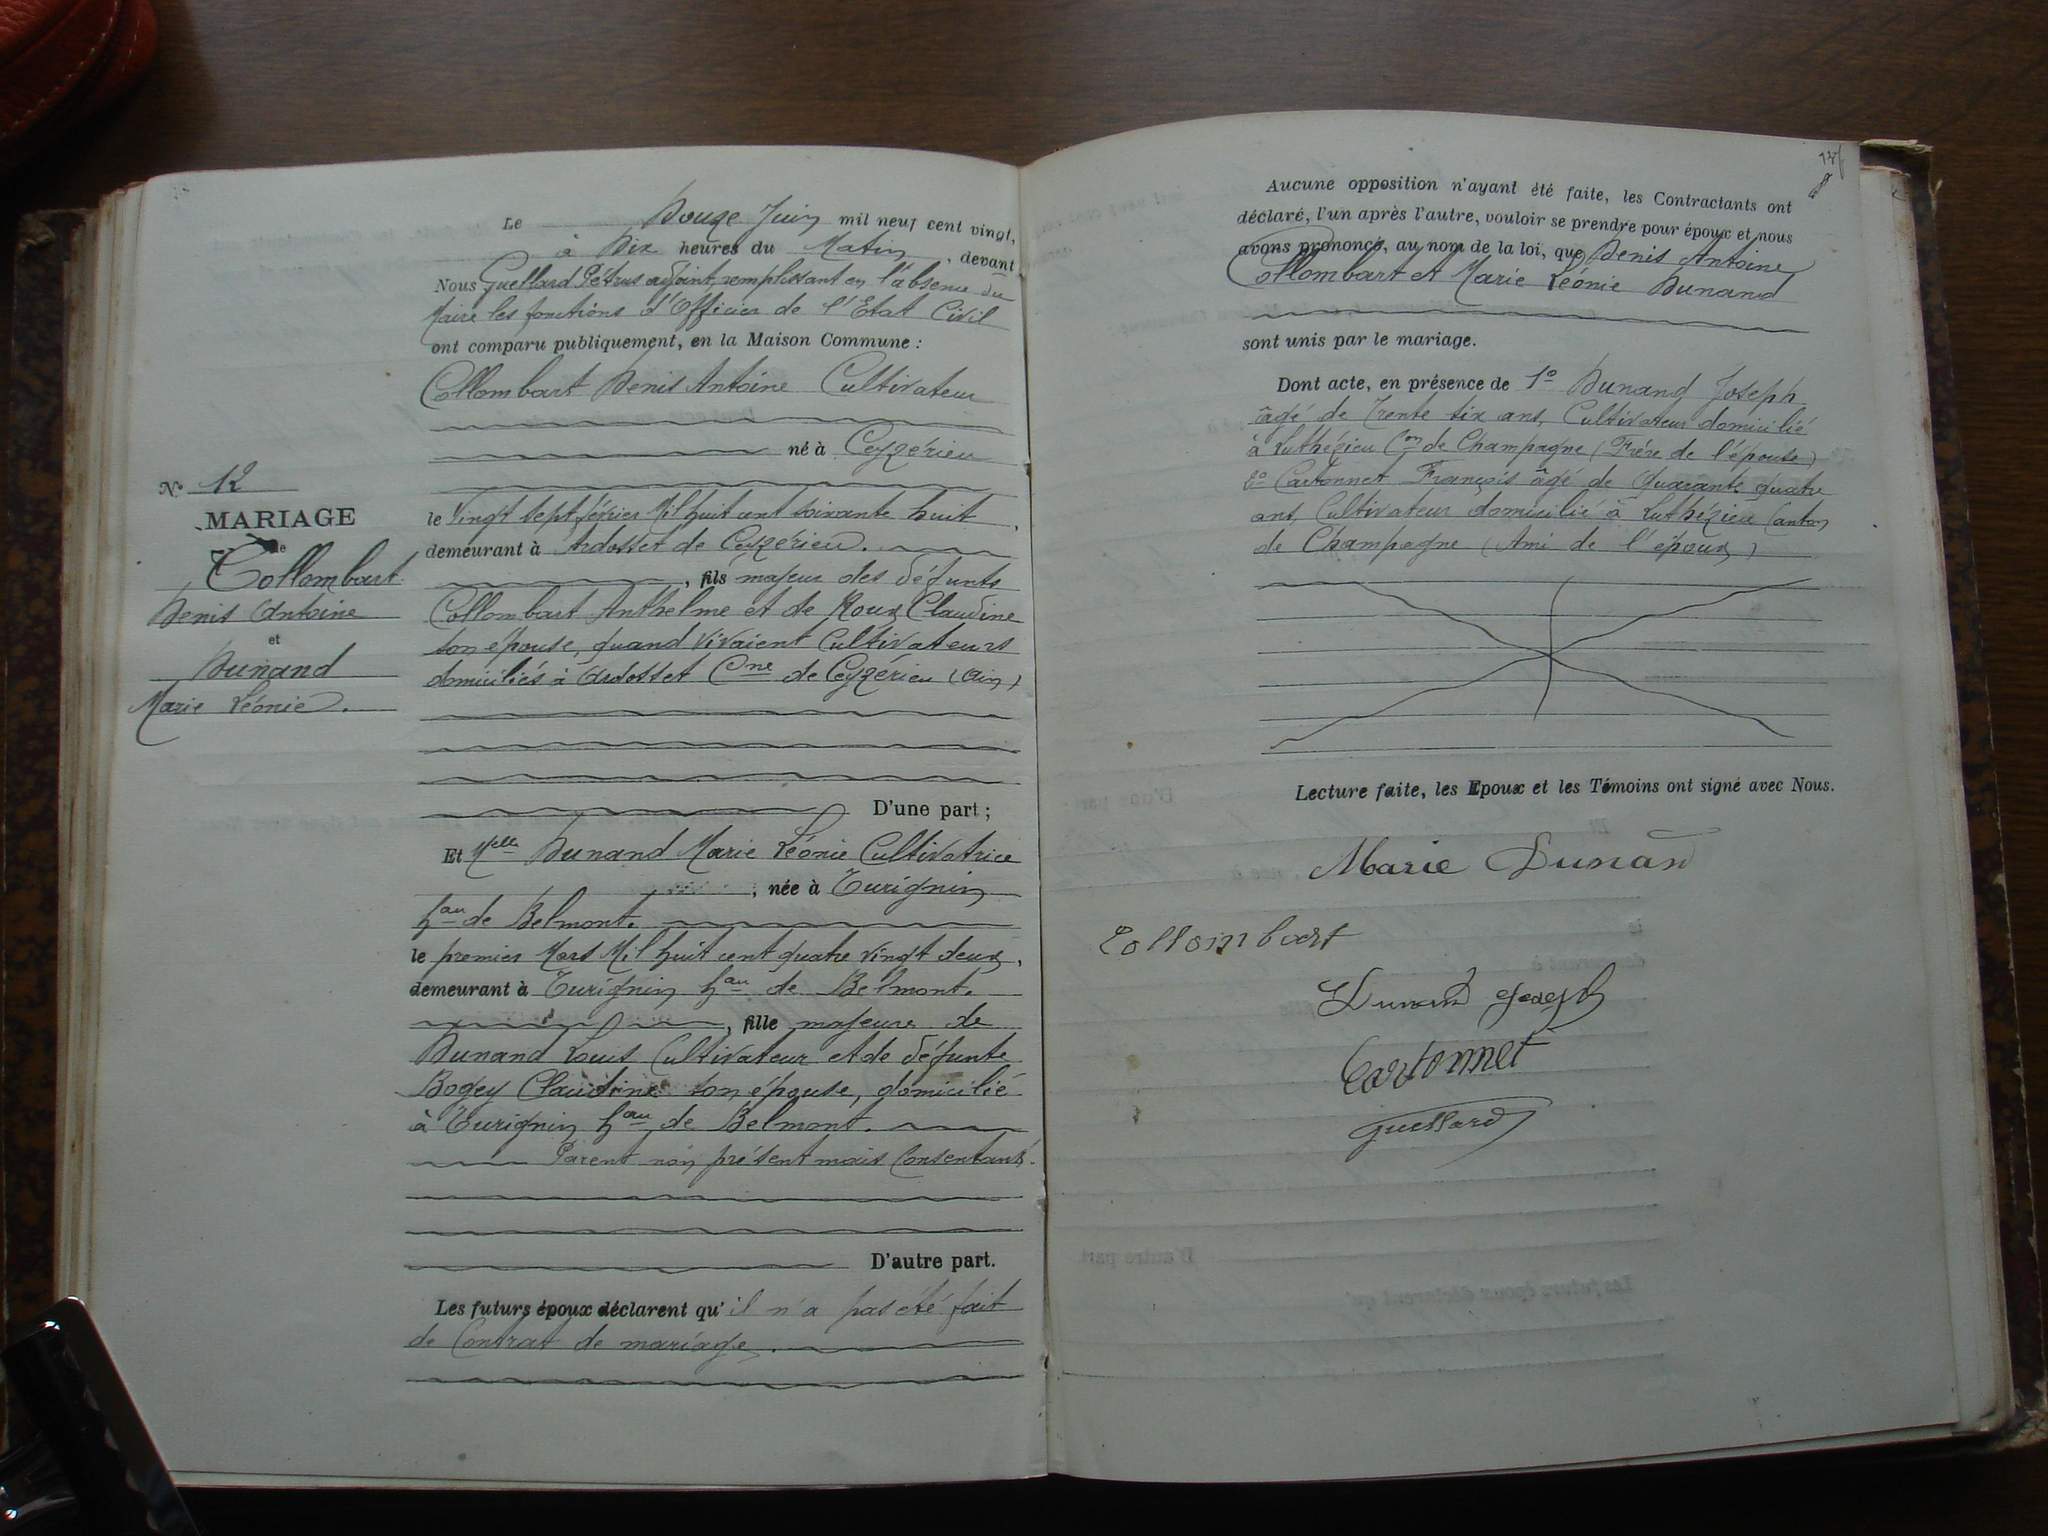 Le Douze Juin mil neuf cent vingt,
à Dix heures du Matin, devant
Nous Guellard Pétrus adjoint, remplissant en l'absence du
Maire les fonctions d'Officier de l'Etat Civil
ont comparu publiquement, en la Maison Commune :
Collombart Denis Antoine Cultivateur
né à Ceyzérieu
le Vingt sept février Mil huit cent soixante huit,
demeurant à Ardosset de Ceyzérieu.
, fils majeur des défunts
Collombart Anthelme et de Roux Claudine
son épouse, quand vivaient Cultivateurs
domiciliés à Ardosset Cne de Ceyzérieu (Ain)
D'une part ;
Et Melle Dunand Marie Léonie Cultivatrice
, née à Turignin
hau de Belmont.
le premier Mars Mil huit cent quatre vingt deux,
demeurant à Turignin hau de Belmont.
, fille majeure de
Dunand Louis Cultivateur et de défunte
Bogey Claudine son épouse, domicilié
à Turignin hau de Belmont.
Parent non présent mais Consentant.
D'autre part.
Les futurs époux déclarent qu'il n'a pas été fait
de Contrat de mariage.
No 12
MARIAGE
de
Collombart
Denis Antoine
et
Dunand
Marie Léonie.
Aucune opposition n'ayant été faite, les Contractants ont
déclaré, l'un après l'autre, vouloir se prendre pour époux et nous
avons prononcé, au nom de la loi, que Denis Antoine
Collombart et Marie Léonie Dunand
sont unis par le mariage.
Dont acte, en présence de 1o Dunand Joseph
âgé de Trente six ans, Cultivateur domicilié
à Luthézieu Con de Champagne (Frère de l'épouse)
2o Cartonnet François âgé de Quarante quatre
ans, Cultivateur domicilié à Luthézieu Canton
de Champagne (Ami de l'époux)
Lecture faite, les Epoux et les Témoins ont signé avec Nous.
Marie Dunan
Collombart
Dunand Joseph
Cartonnet
Guellard